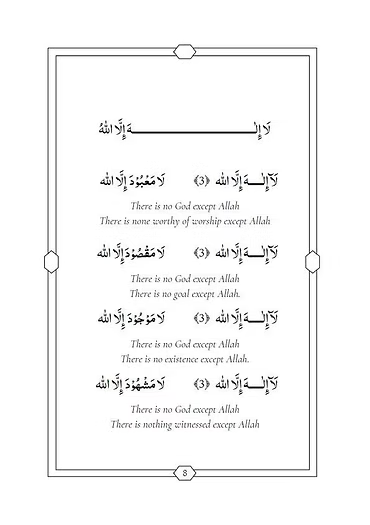 لَا إِلٰـــــــــــــــــهَ إِلَّا اللهُ
لَآ إِلٰـــهَ إِلَّا الله ﴿3﴾ لَا مَعْبُوْدَ إِلَّا الله
There is no God except Allah
There is none worthy of worship except Allah
لَآ إِلٰـــهَ إِلَّا الله ﴿3﴾ لَا مَقْصُوْدَ إِلَّا الله
There is no God except Allah
There is no goal except Allah.
لَآ إِلٰـــهَ إِلَّا الله ﴿3﴾ لَا مَوْجُوْدَ إِلَّا الله
There is no God except Allah
There is no existence except Allah.
لَآ إِلٰـــهَ إِلَّا الله ﴿3﴾ لَا مَشْهُوْدَ إِلَّا الله
There is no God except Allah
There is nothing witnessed except Allah
8